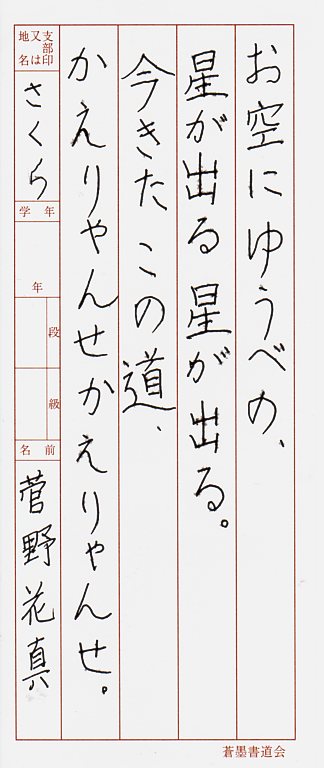 お空にゆうべの、
星が出る星が出る。
今きたこの道、
かえりゃんせかえりゃんせ。
支部印
又は
地名
さくら
学年
年
段
級
名前
菅野花真
蒼墨書道会